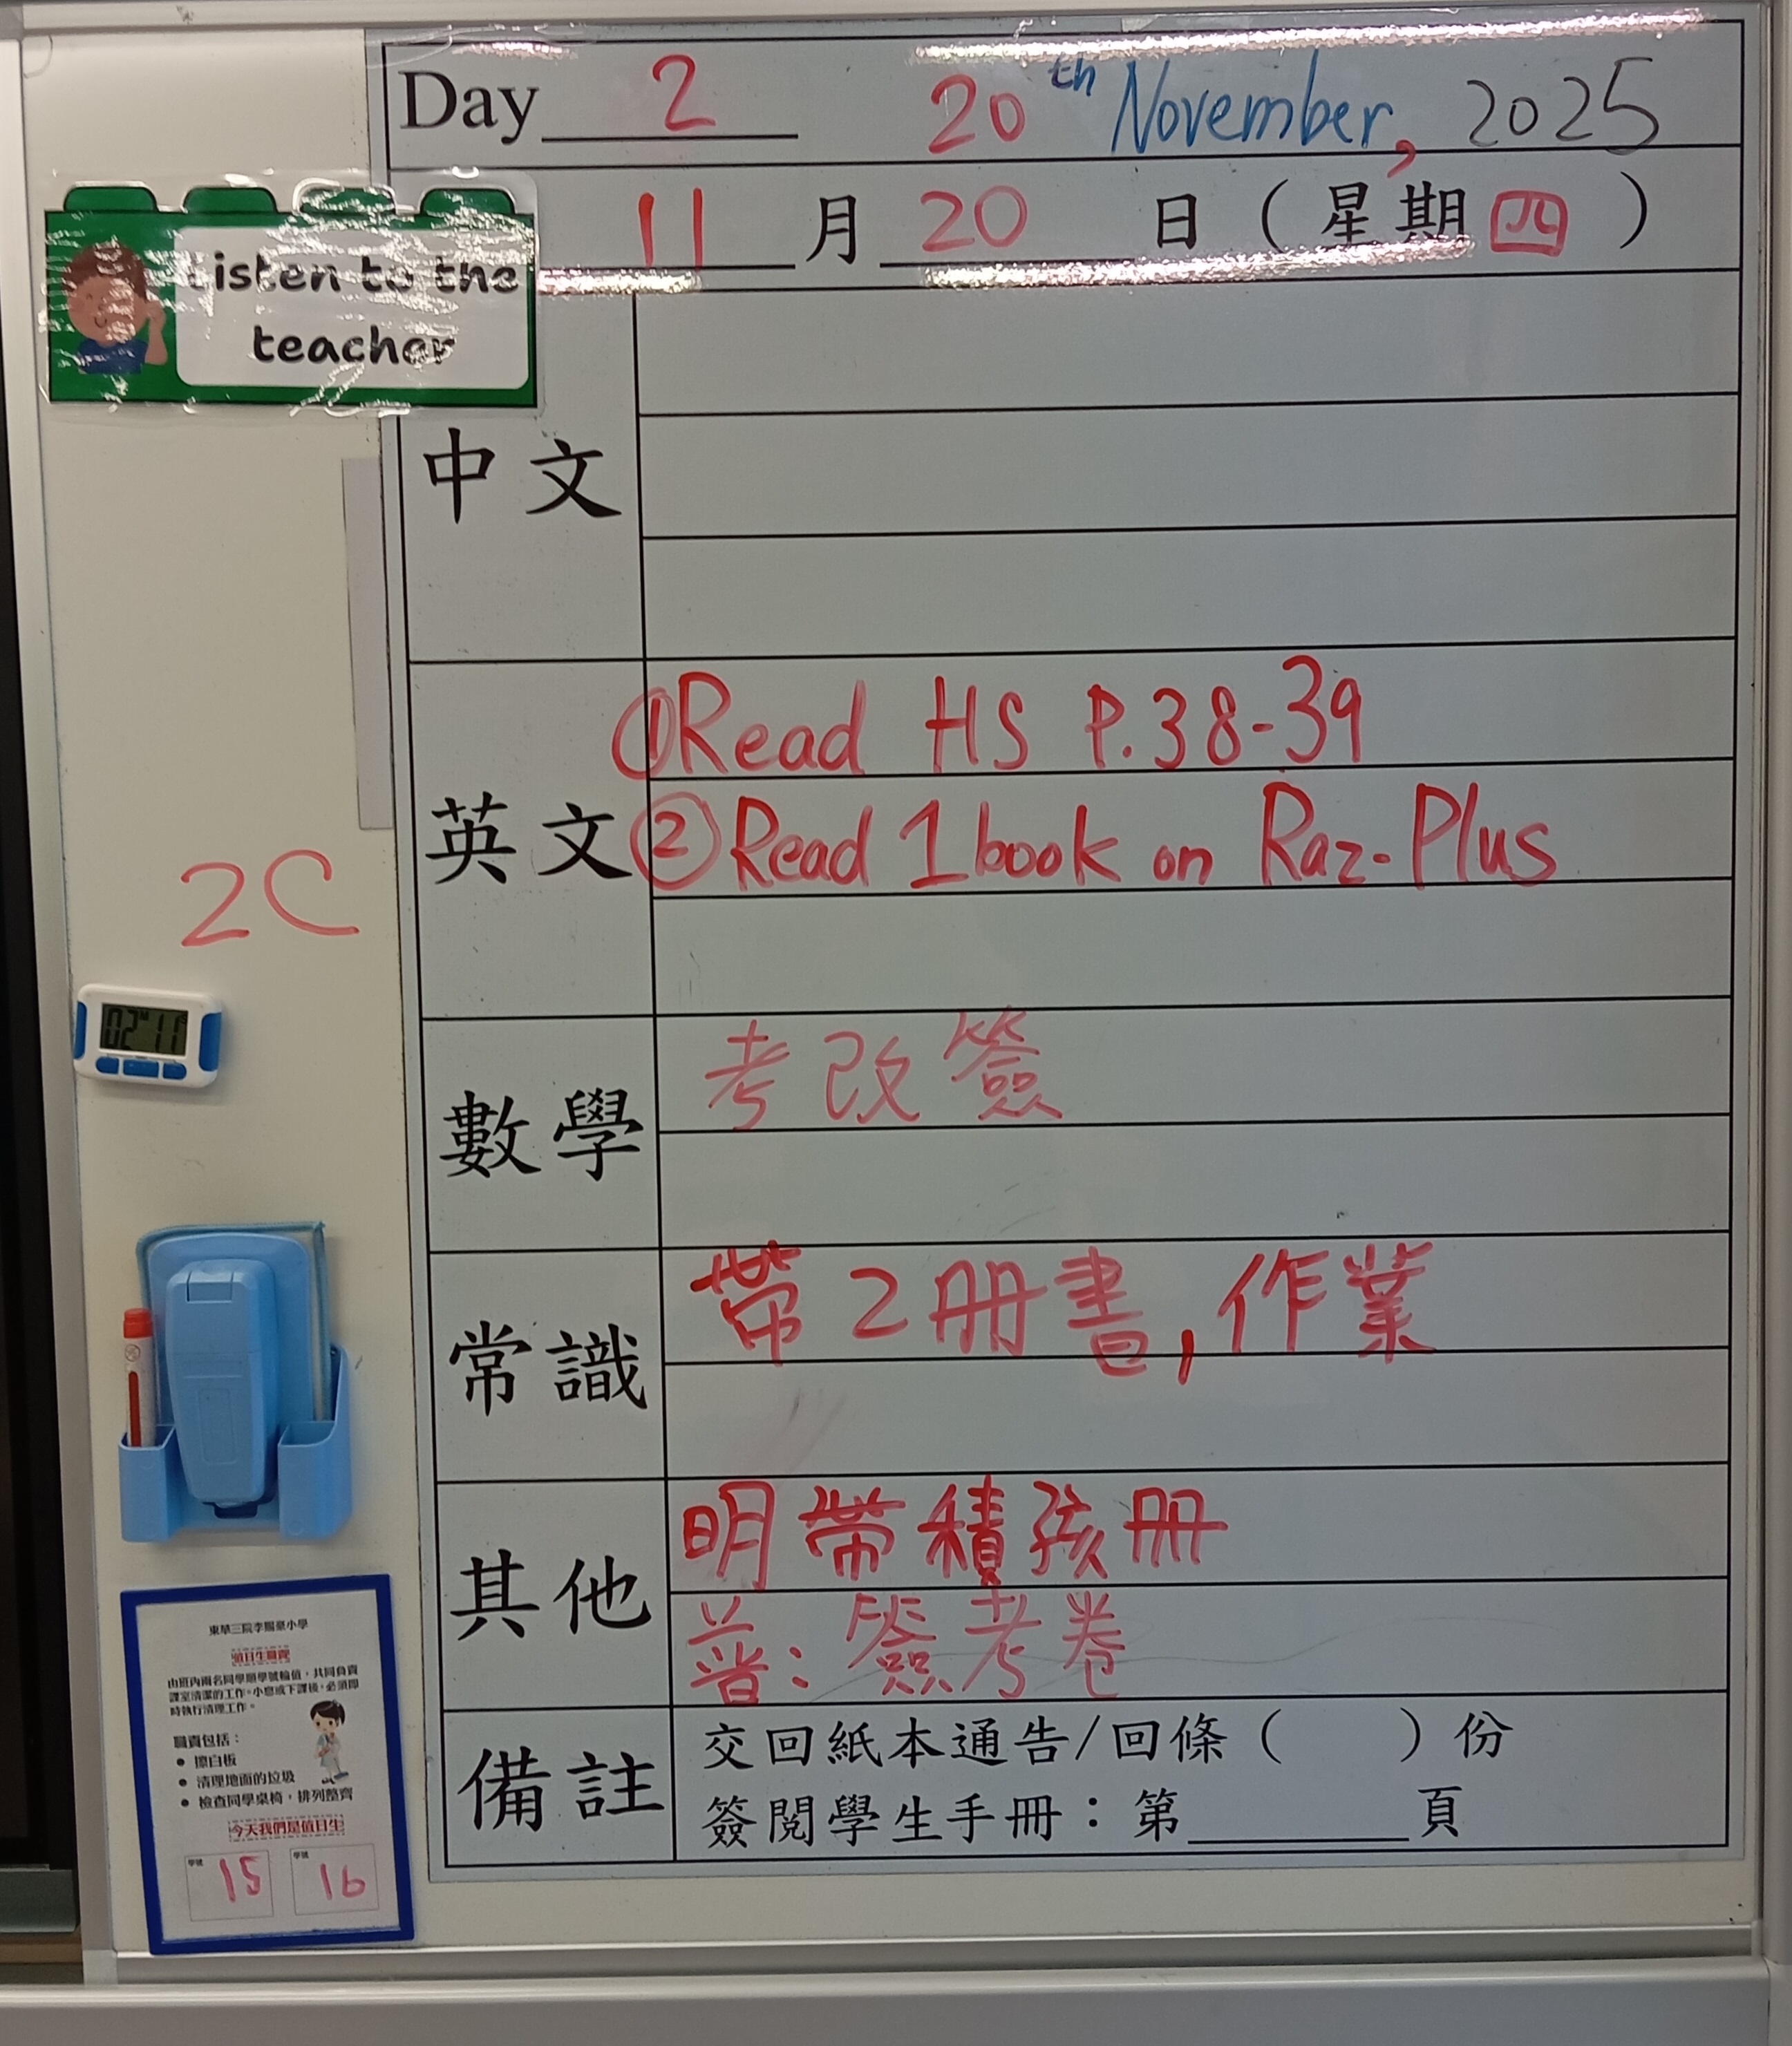 Day 2 20th November, 2025
11月20日（星期四）
Listen to the teacher
中文
英文
①Read HS P.38-39
②Read 1 book on Raz-Plus
2C
02 11
數學
考改簽
常識
帶2冊書,作業
其他
明帶積孩冊
普：簽考卷
備註
交回紙本通告/回條（ ）份
簽閱學生手冊：第____頁
東華三院李賜豪小學
值日生職責
由班內兩名同學順學號輪值，共同負責
課室清潔的工作。小息或下課後，必須即
時執行清理工作。
職責包括：
● 擦白板
● 清理地面的垃圾
● 檢查同學桌椅，排列整齊
今天我們是值日生
學號 15 學號 16